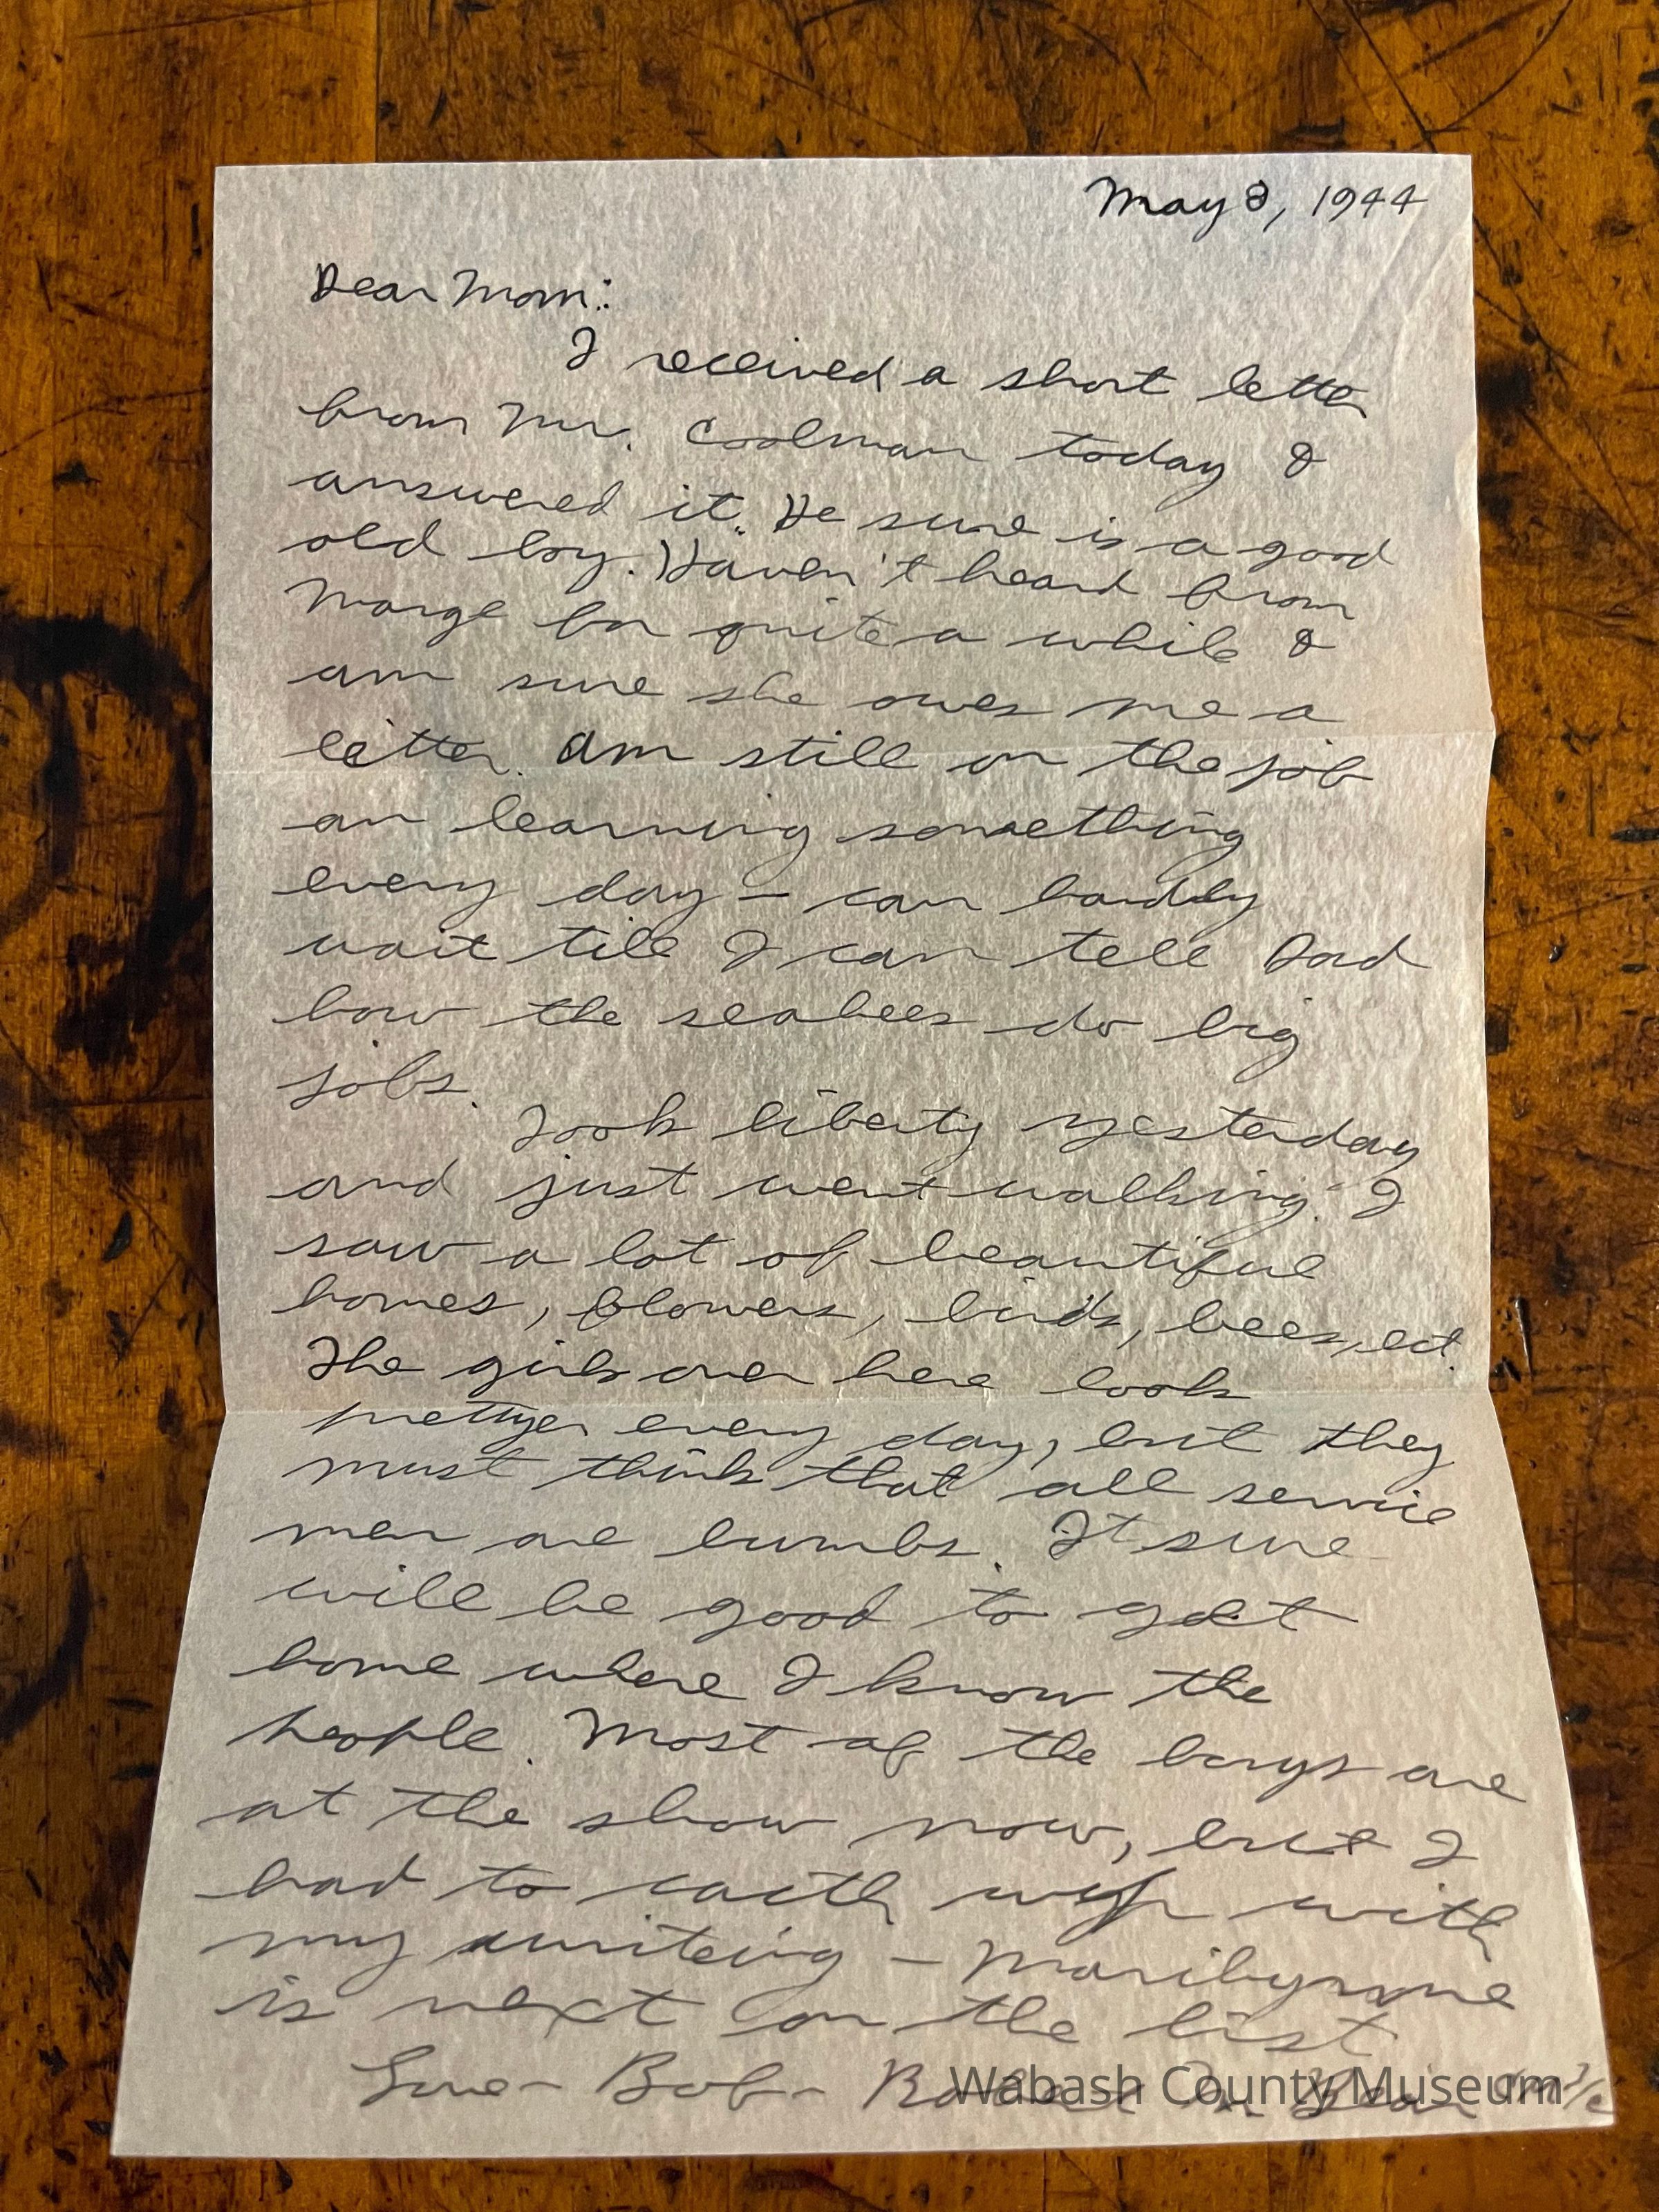 May 8, 1944
Dear Mom:
I received a short letter
from Mr. Coolman today &
answered it. He sure is a good
old boy. Haven't heard from
Marge for quite a while &
am sure she owes me a
letter. Am still on the job
an learning something
every day - can hardly
wait till I can tell Dad
how the seabees do big
jobs.
Took liberty yesterday
and just went walking. I
saw a lot of beautiful
homes, flowers, birds, bees, ect.
The girls over here look
prettyer every day, but they
must think that all service
men are bumbs. It sure
will be good to get
home where I know the
people. Most of the boys are
at the show now, but I
had to catch up with
my writeing - Marilynne
is next on the list
Love - Bob -
Wabash County Museum